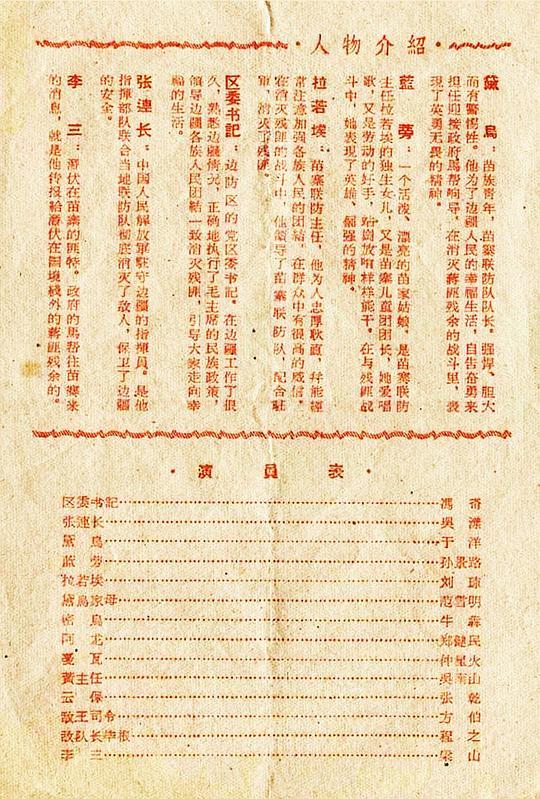 ·人物介紹·
黛 烏：苗族青年，苗寨联防队队长。强悍、胆大
而有警惕性。他为了边疆人民的幸福生活，自告奋勇来
担任迎接政府馬帮向导，在消灭蔣匪残余的战斗里，表
現了英勇无畏的精神。
藍 蒡：一个活泼、漂亮的苗家姑娘，是苗寨联防
主任拉若埃的独生女儿，又是苗寨儿童团团长，她爱唱
歌，又是劳动的好手，站崗放哨样样能干。在与残匪战
斗中，她表現了英雄、倔强的精神。
拉若埃：苗寨联防主任，他为人忠厚耿直，幷能經
常注意加强各族人民的团結，在群众中有很高的威信。
在消灭残匪的战斗中，他領导了苗寨联防队，配合駐
軍，消灭了残匪。
区委书記：边防区的党区委书記。在边疆工作了很
久，熟悉边疆情况，正确地执行了毛主席的民族政策，
領导边疆各族人民团結一致消灭残匪，引导大家走向幸
福的生活。
张連长：中国人民解放軍駐守边疆的指揮員。是他
指揮部队联合当地联防队彻底消灭了敌人，保卫了边疆
的安全。
李 三：潛伏在苗寨的匪特。政府的馬帮往苗乡来
的消息，就是他传报給潛伏在国境綫外的蔣匪残余的。
·演員表·
区委书記 馮奇
张連长 吳漾
黛烏 于洋
蓝蒡 孙景路
拉若埃 刘琼
黛烏家母 范雪明
密烏 牛犇
阿尤 郑健民
戛瓦 仲星火
黃主任 吳南山
云保 张乾
敌王司令 方伯
敌队长 程之
李三 梁山